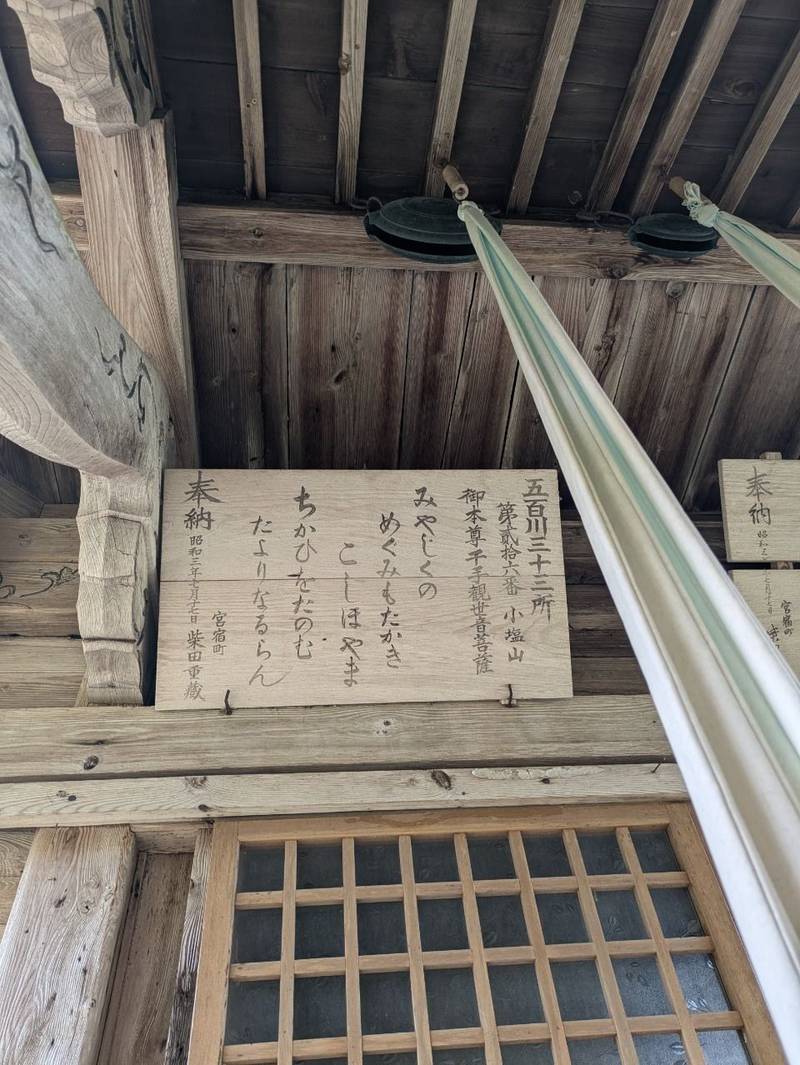 五百川三十三所
第貳拾六番 小塩山
御本尊千手觀世音菩薩
みやしくの
めぐみもたかき
こしほやま
ちかひをたのむ
たよりなるらん
奉納
昭和三年十月十七日
宮宿町
柴田重藏
奉納
宮宿町